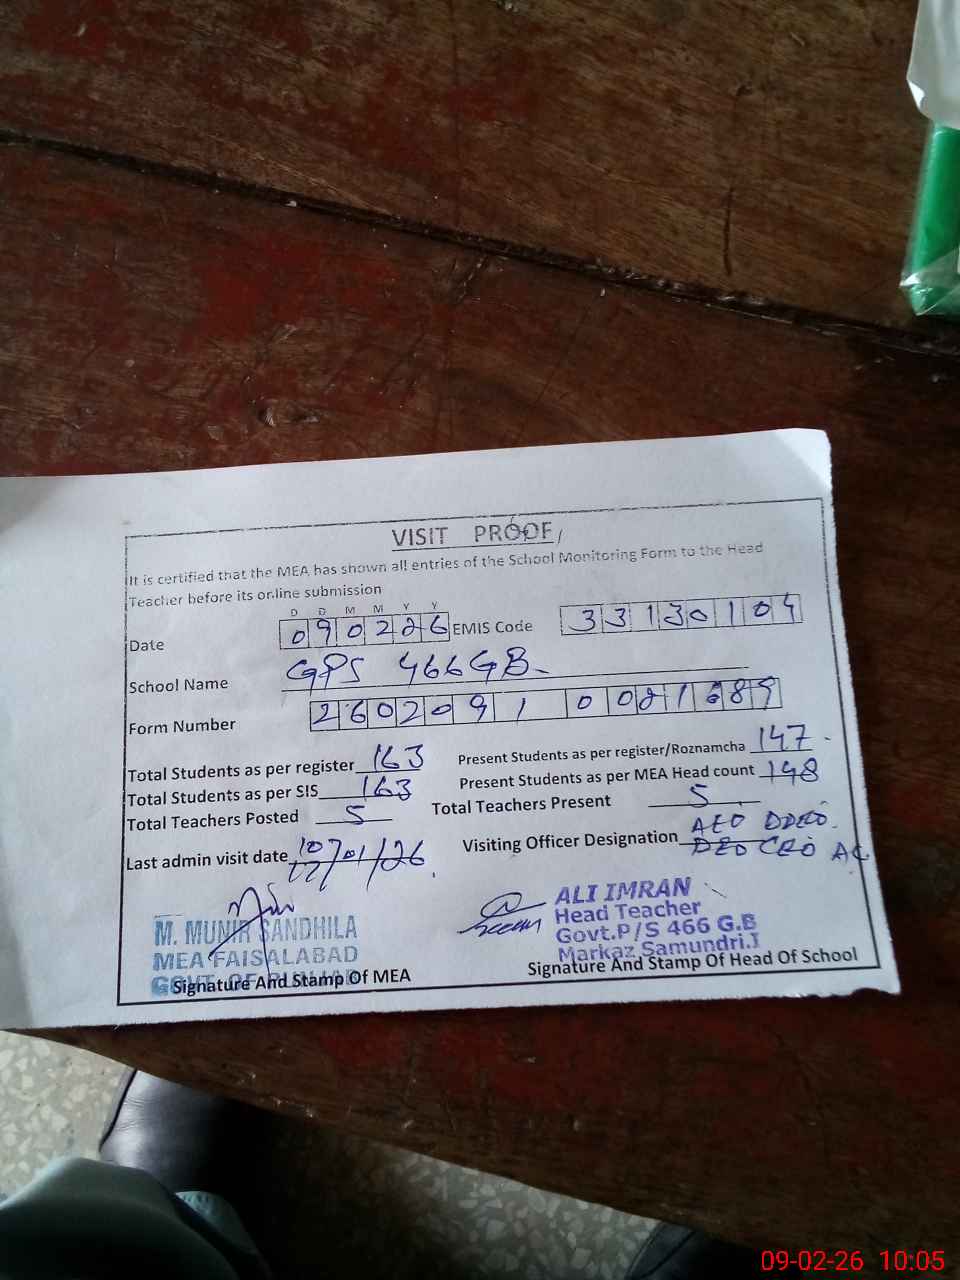 VISIT PROOF
It is certified that the MEA has shown all entries of the School Monitoring Form to the Head
Teacher before its online submission
D D M M Y Y
Date 090226 EMIS Code 33130104
School Name GPS 466 GB
Form Number
Total Students as per register 163 Present Students as per register/Roznamcha 147
Total Students as per SIS 163 Present Students as per MEA Head count 148
Total Teachers Posted 5 Total Teachers Present 5
Last admin visit date /01/26 Visiting Officer Designation AEO DDEO
DEO CEO AC
M. MUNIR SANDHILA
MEA FAISALABAD
GOVT OF PUNJAB
Signature And Stamp Of MEA
ALI IMRAN
Head Teacher
Govt.P/S 466 G.B
Markaz Samundri.I
Signature And Stamp Of Head Of School
09-02-26 10:05